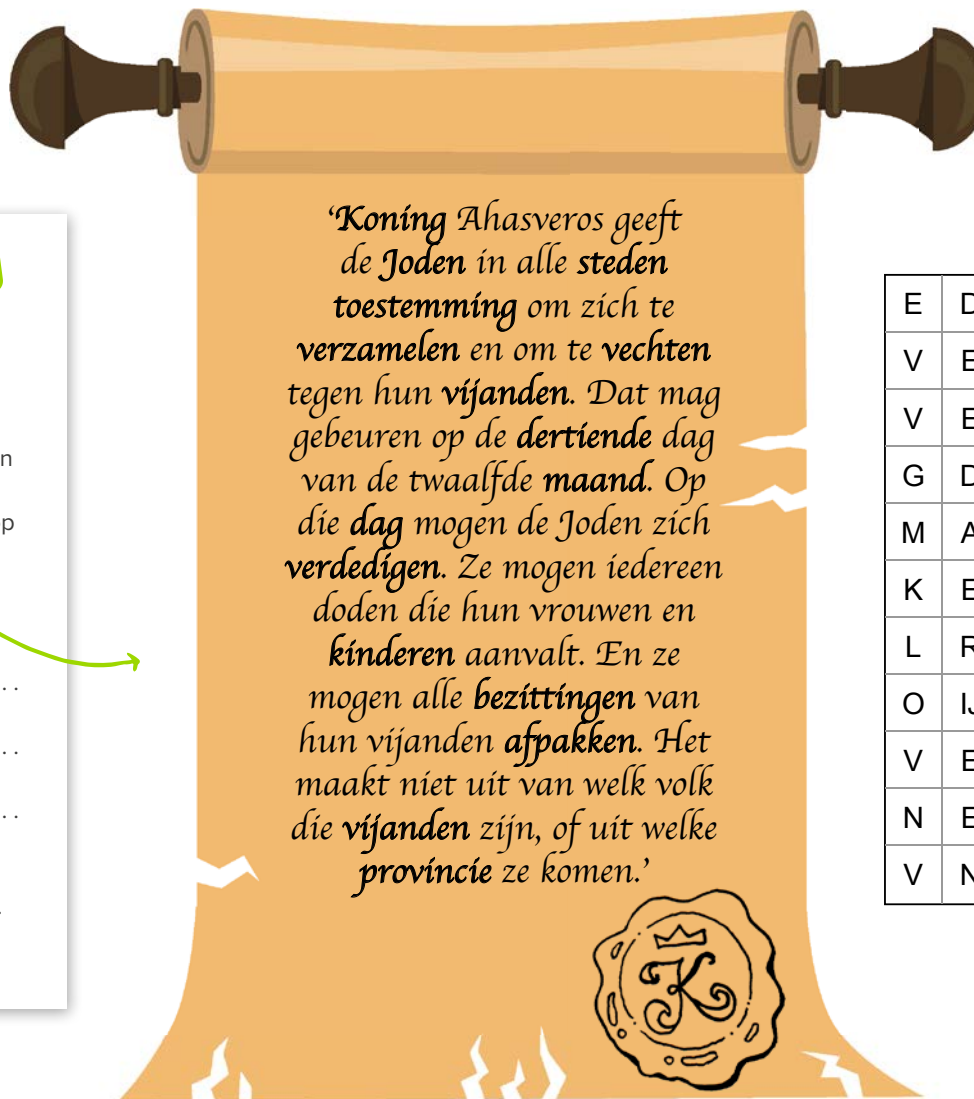 n
p
. .
. .
. .
‘Koning Ahasveros geeft
de Joden in alle steden
toestemming om zich te
verzamelen en om te vechten
tegen hun vijanden. Dat mag
gebeuren op de dertiende dag
van de twaalfde maand. Op
die dag mogen de Joden zich
verdedigen. Ze mogen iedereen
doden die hun vrouwen en
kinderen aanvalt. En ze
mogen alle bezittingen van
hun vijanden afpakken. Het
maakt niet uit van welk volk
die vijanden zijn, of uit welke
provincie ze komen.’
K
E D
V E
V E
G D
M A
K E
L R
O IJ
V E
N E
V N